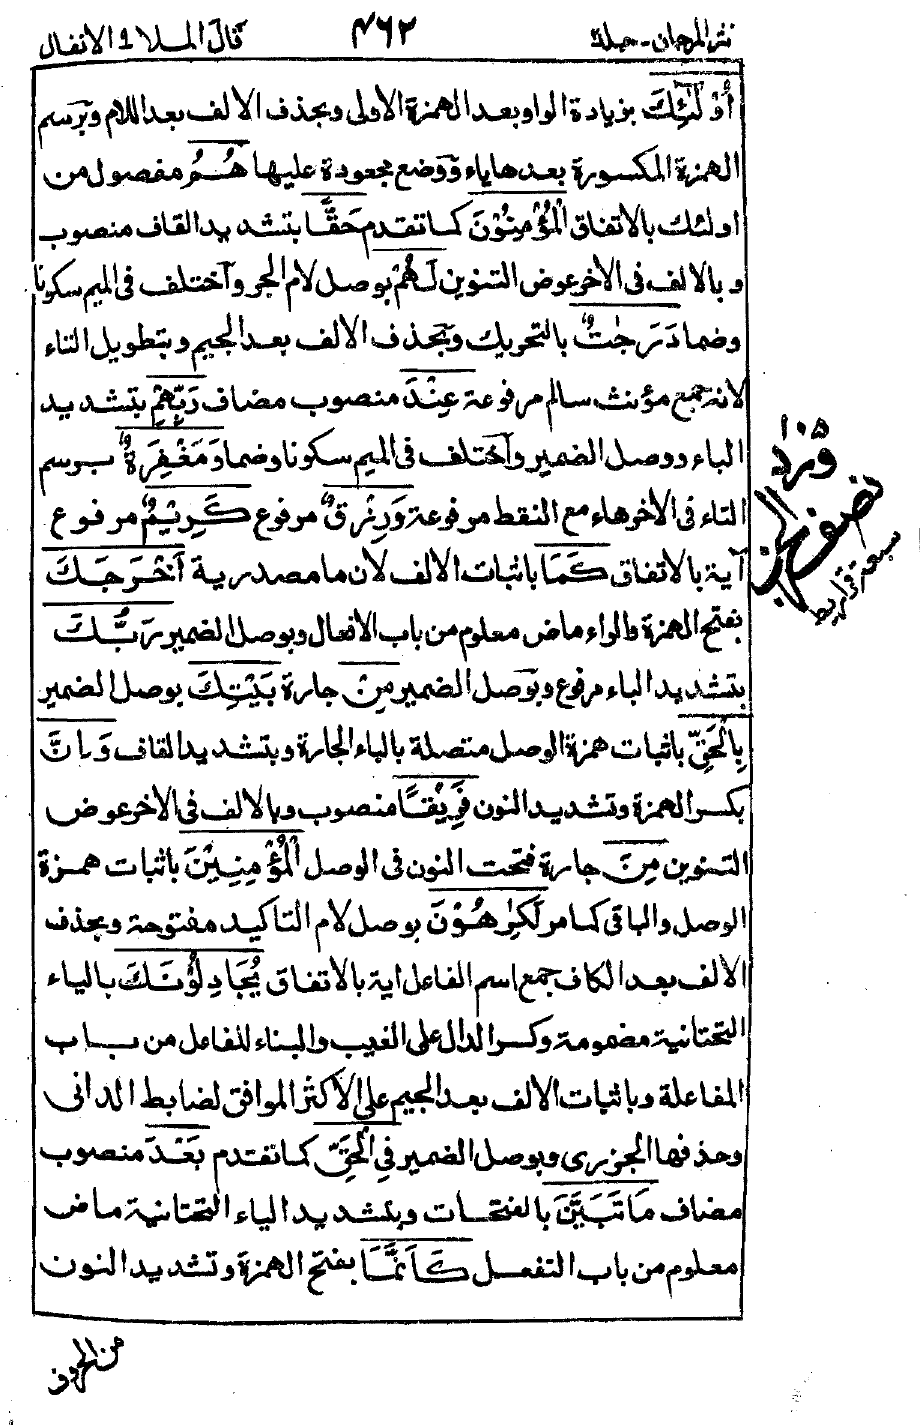 نثر المرجان - جلد ٢
٤٦٢
قال الملا ٩ الانفال
أُوْلَٰٓئِكَ بزيادة الواو بعد الهمزة الاولى وبحذف الالف بعد اللام وبرسم
الهمزة المكسورة بعدها ياء ووضع مجعودة عليها هُمُ مفصول من
اولئك بالاتفاق الْمُؤْمِنُوْنَ كما تقدم حَقًّا بتشديد القاف منصوب
وبالالف فى الاخر عوض التنوين لَهُمْ بوصل لام الجر واختلف فى الميم سكونا
وضما دَرَجٰتٌ بالتحريك وبحذف الالف بعد الجيم وبتطويل التاء
لانه جمع مؤنث سالم مرفوعة عِنْدَ منصوب مضاف رَبِّهِمْ بتشديد
الباء ووصل الضمير واختلف فى الميم سكونا وضما وَمَغْفِرَةٌ برسم
التاء فى الاخر هاء مع النقط مرفوعة وَرِزْقٌ مرفوع كَرِيْمٌ مرفوع
آية بالاتفاق كَمَا باثبات الالف لان ما مصدرية أَخْرَجَكَ
بفتح الهمزة والراء ماض معلوم من باب الافعال وبوصل الضمير رَبُّكَ
بتشديد الباء مرفوع وبوصل الضمير مِنْ جارة بَيْتِكَ بوصل الضمير
بِالْحَقِّ باثبات همزة الوصل متصلة بالباء الجارة وبتشديد القاف وَإِنَّ
بكسر الهمزة وتشديد النون فَرِيْقًا منصوب وبالالف فى الاخر عوض
التنوين مِنَ جارة فتحت النون فى الوصل الْمُؤْمِنِيْنَ باثبات همزة
الوصل والباقى كما مر لَكٰرِهُوْنَ بوصل لام التاكيد مفتوحة وبحذف
الالف بعد الكاف جمع اسم الفاعل اية بالاتفاق يُجَادِلُوْنَكَ بالياء
التحتانية مضمومة وكسر الدال على الغيب والبناء للفاعل من باب
المفاعلة وباثبات الالف بعد الجيم على الاكثر الموافق لضابط الدانى
وحذفها الجزرى وبوصل الضمير فِي الْحَقِّ كما تقدم بَعْدَ منصوب
مضاف مَا تَبَيَّنَ بالفتحات وبتشديد الياء التحتانية ماض
معلوم من باب التفعل كَأَنَّمَا بفتح الهمزة وتشديد النون
نصف الحزب
من الحروف